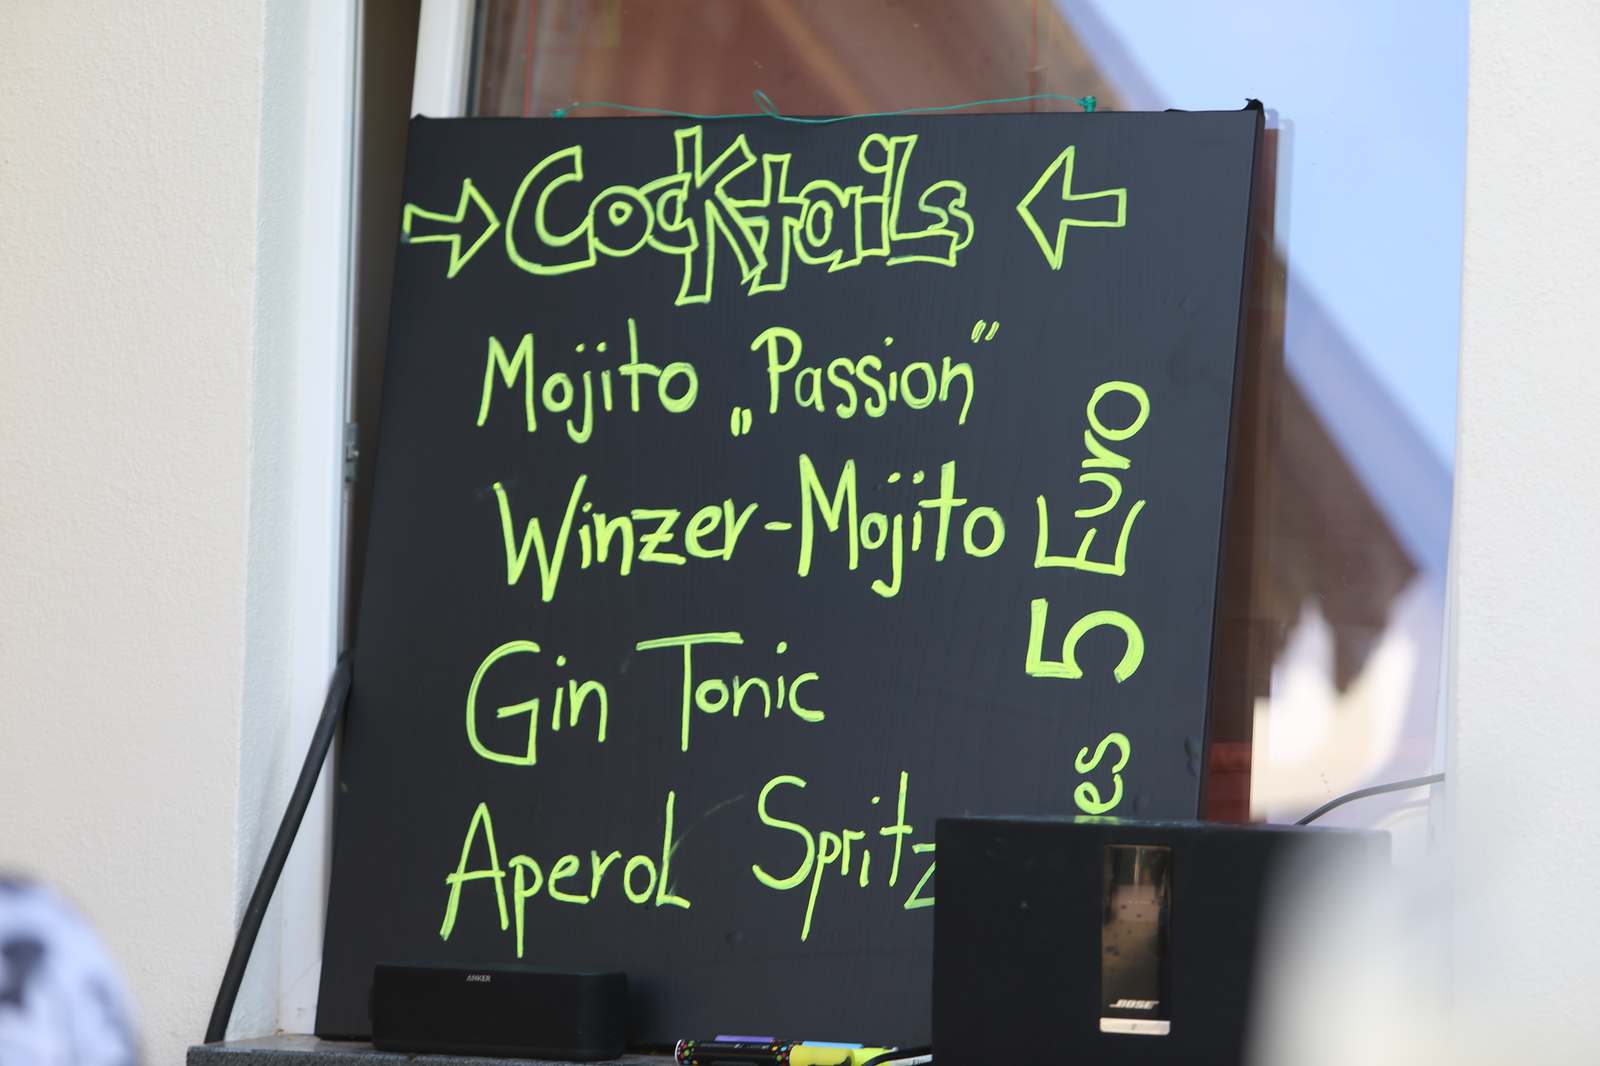 Cocktails
Mojito „Passion“
Winzer-Mojito
Gin Tonic
Aperol Spritz
es 5 Euro
ANKER
BOSE